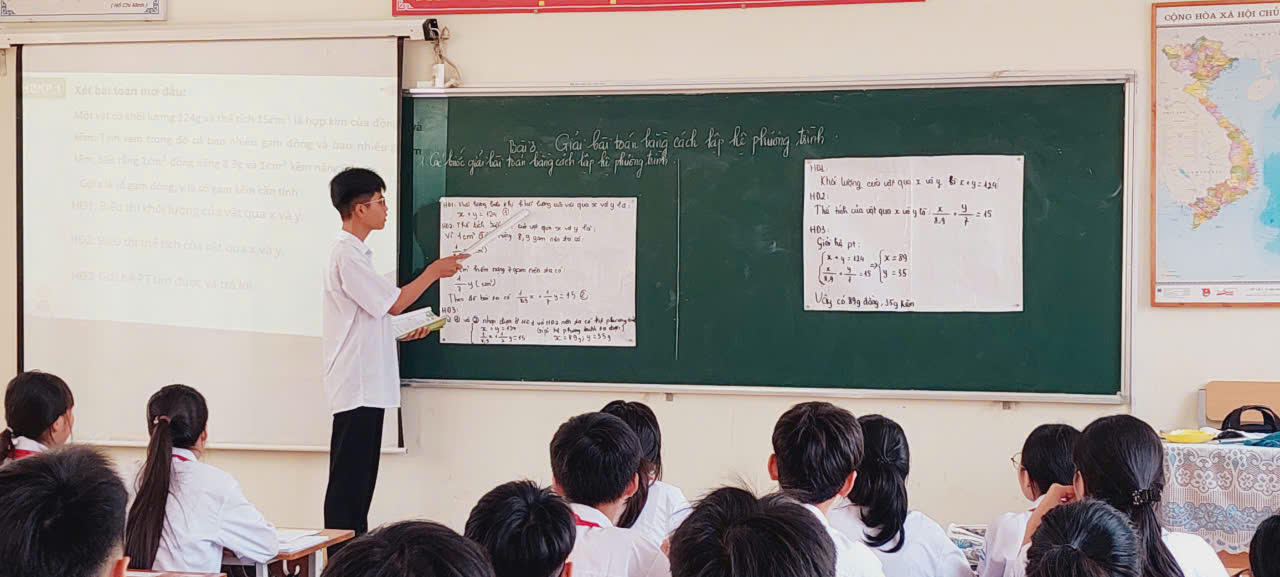 (Hồ Chí Minh)
HĐKP 1
Xét bài toán mở đầu:
Một vật có khối lượng 124g và thể tích 15cm³ là hợp kim của đồng
kẽm. Tính xem trong đó có bao nhiêu gam đồng và bao nhiêu
kẽm, biết rằng 1cm³ đồng nặng 8,9g và 1cm³ kẽm nặng
Gọi x là số gam đồng, y là số gam kẽm cần tính
HĐ1: Biểu thị khối lượng của vật qua x và y.
HĐ2: Biểu thị thể tích của vật qua x và y.
HĐ3: Giải hệ PT tìm được và trả lời
Bài 3. Giải bài toán bằng cách lập hệ phương trình.
1. Các bước giải bài toán bằng cách lập hệ phương trình
HĐ1: Khối lượng biểu thị khối lượng của vật qua x và y là:
x + y = 124 ①
HĐ2: Thể tích của vật qua x và y là:
Vì 1cm³ nặng 8,9 gam nên ta có:
kẽm nặng 7 gam nên ta có
1/7 y (cm³)
Theo đề bài ta có 1/8,9 x + 1/7 y = 15 ②
HĐ3:
① và ② nhận được ở HĐ1 và HĐ2 nên ta có hệ phương
x + y = 124 Giải hệ phương trình ta được
1/8,9 x + 1/7 y = 15 x = 89, y = 35
HĐ1:
Khối lượng của vật qua x và y là x + y = 124
HĐ2:
Thể tích của vật qua x và y là: x/8,9 + y/7 = 15
HĐ3:
Giải hệ pt:
{ x + y = 124 => { x = 89
{ x/8,9 + y/7 = 15 { y = 35
Vậy có 89g đồng, 35g kẽm
CỘNG HÒA XÃ HỘI CHỦ